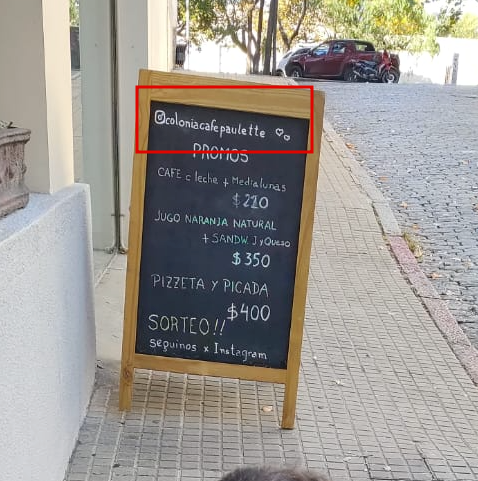 @coloniacafepaulette
PROMOS
CAFE c leche + Medialunas
$210
JUGO NARANJA NATURAL
+ SANDW. J y Queso
$350
PIZZETA Y PICADA
$400
SORTEO!!
seguinos x Instagram